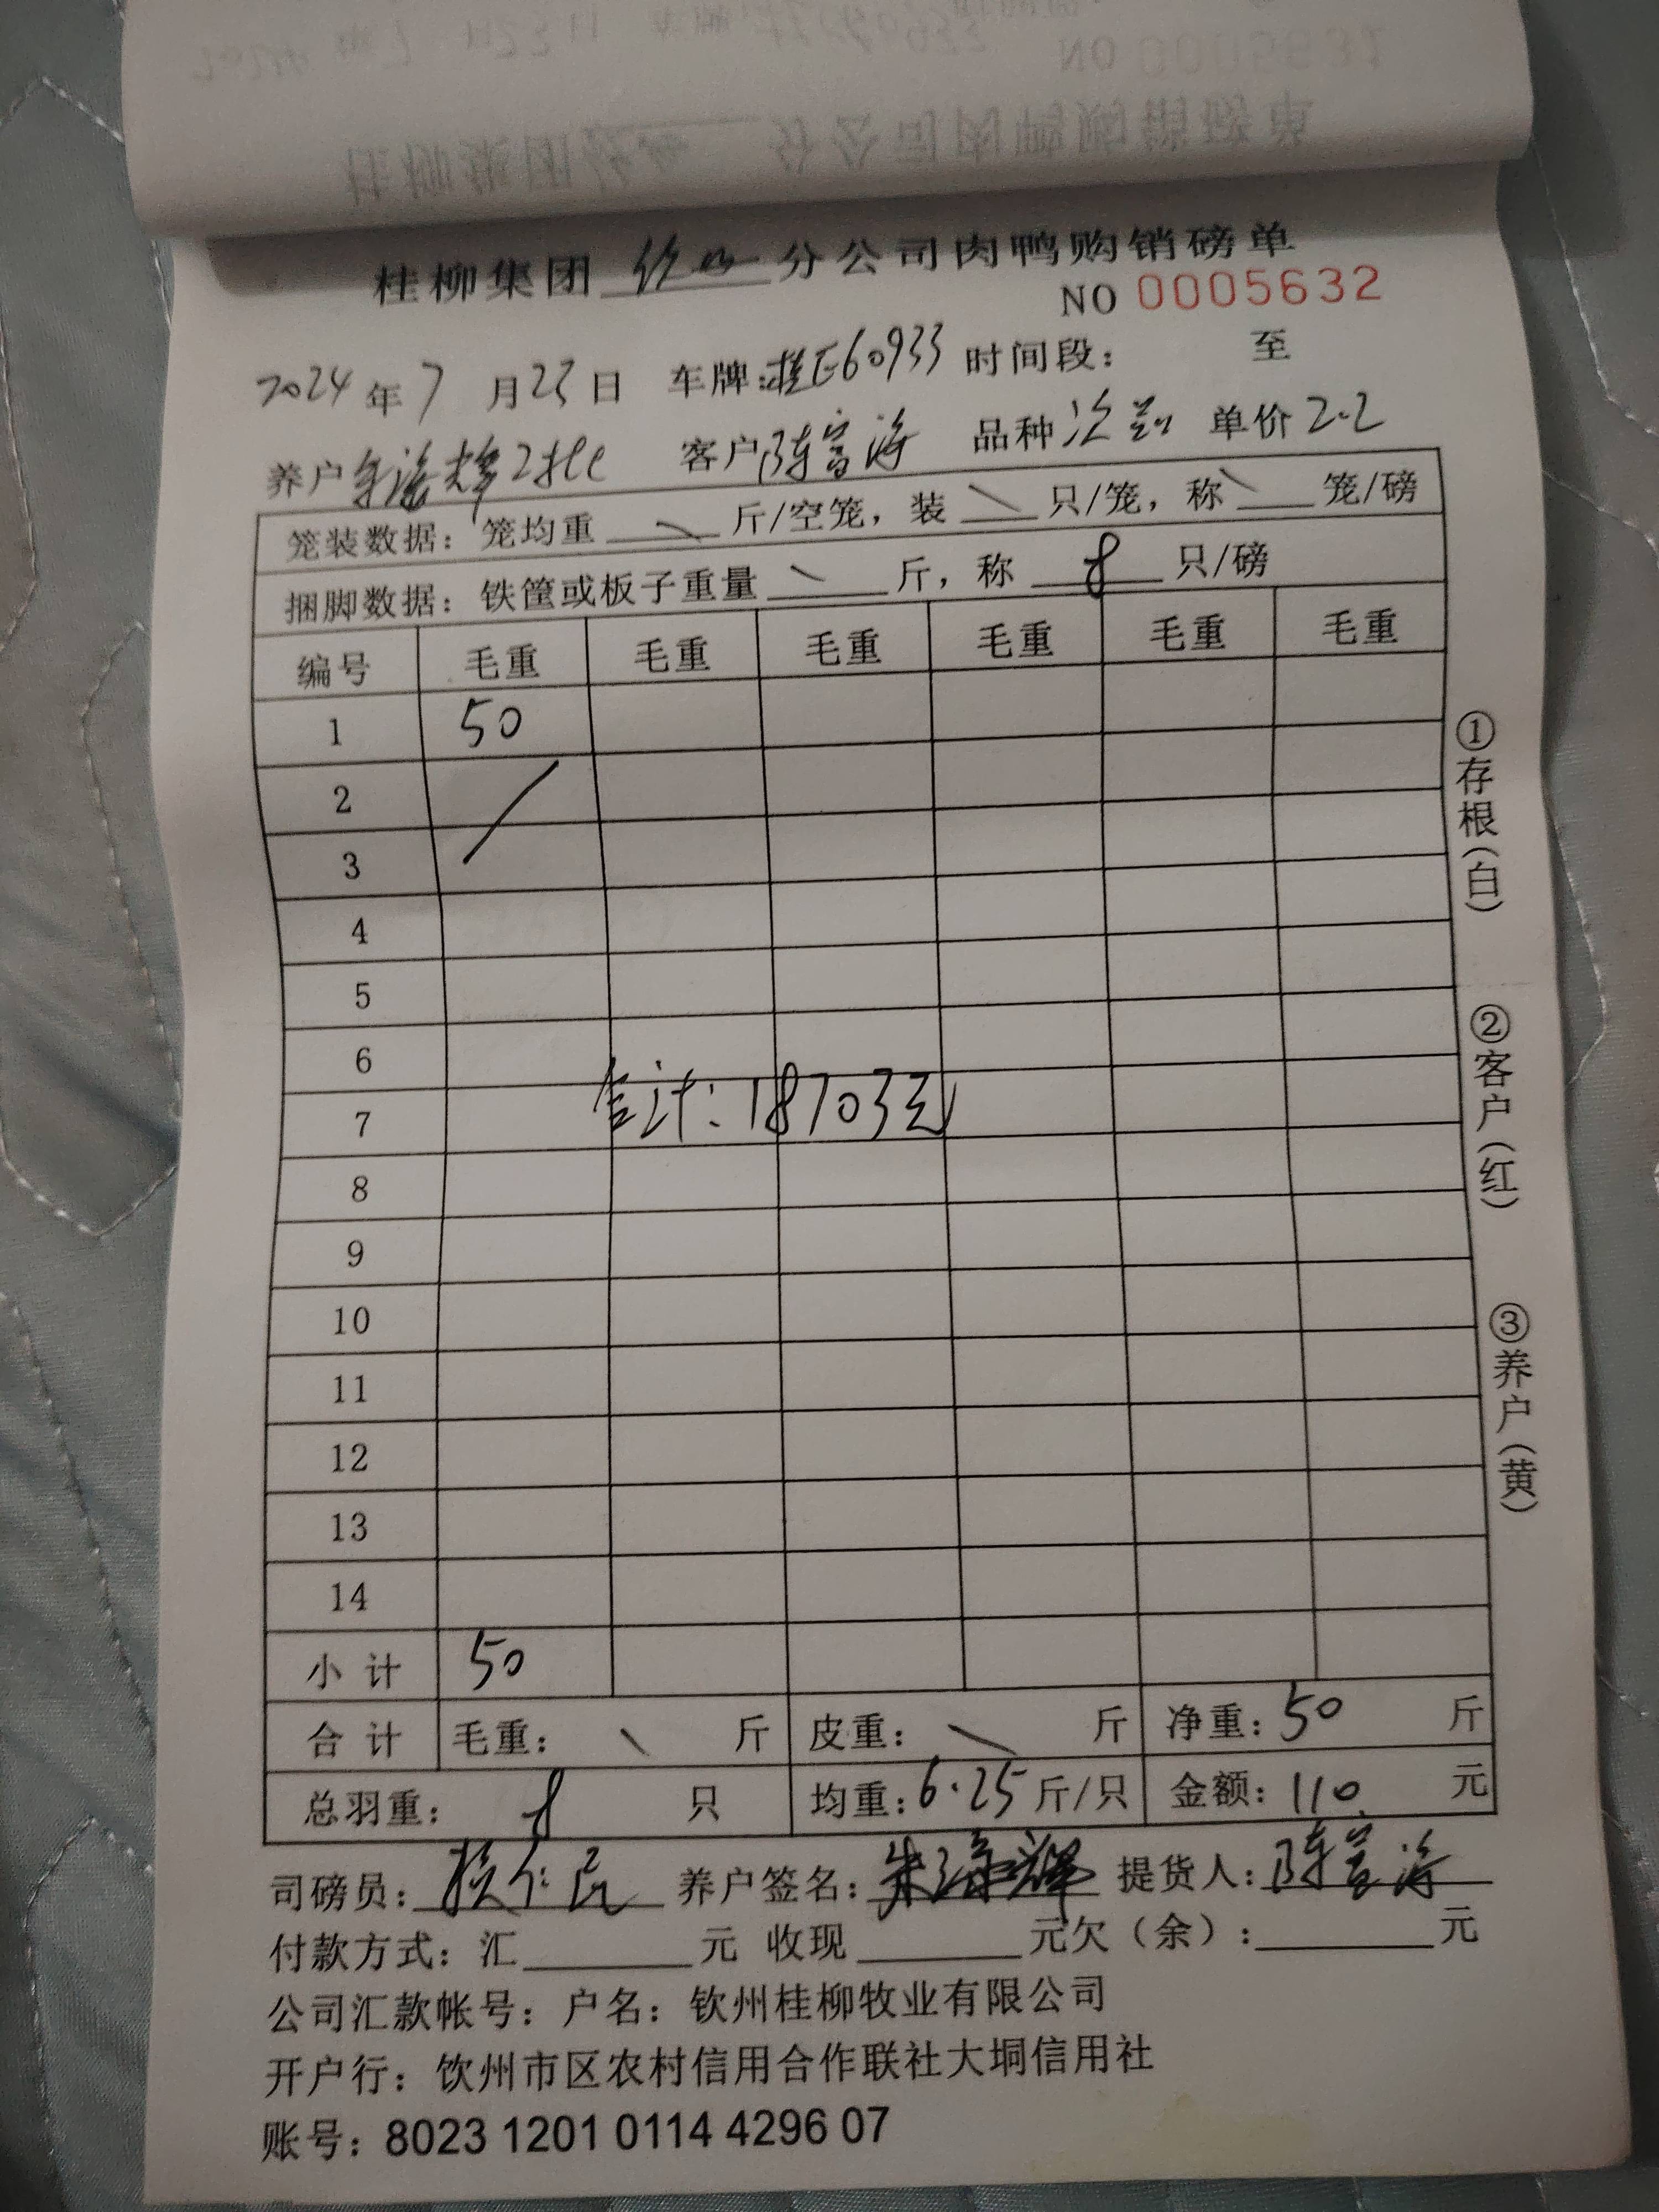 桂柳集团 分公司肉鸭购销磅单
NO 0005632
2024年7月23日 车牌:桂E60933 时间段: 至
养户 2批 客户 陈富海 品种 次 单价 2.2
笼装数据: 笼均重 \ 斤/空笼, 装 \ 只/笼, 称 \ 笼/磅
捆脚数据: 铁筐或板子重量 \ 斤, 称 8 只/磅
编号 毛重 毛重 毛重 毛重 毛重 毛重
1 50
2
3
4
5
6
7 合计:18703元
8
9
10
11
12
13
14
小计 50
合计 毛重: \ 斤 皮重: \ 斤 净重: 50 斤
总羽重: 8 只 均重: 6.25 斤/只 金额: 110 元
司磅员: 养户签名: 提货人: 陈富海
付款方式: 汇 元 收现 元欠(余): 元
公司汇款帐号: 户名: 钦州桂柳牧业有限公司
开户行: 钦州市区农村信用合作联社大垌信用社
账号: 8023 1201 0114 4296 07
①存根(白)
②客户(红)
③养户(黄)